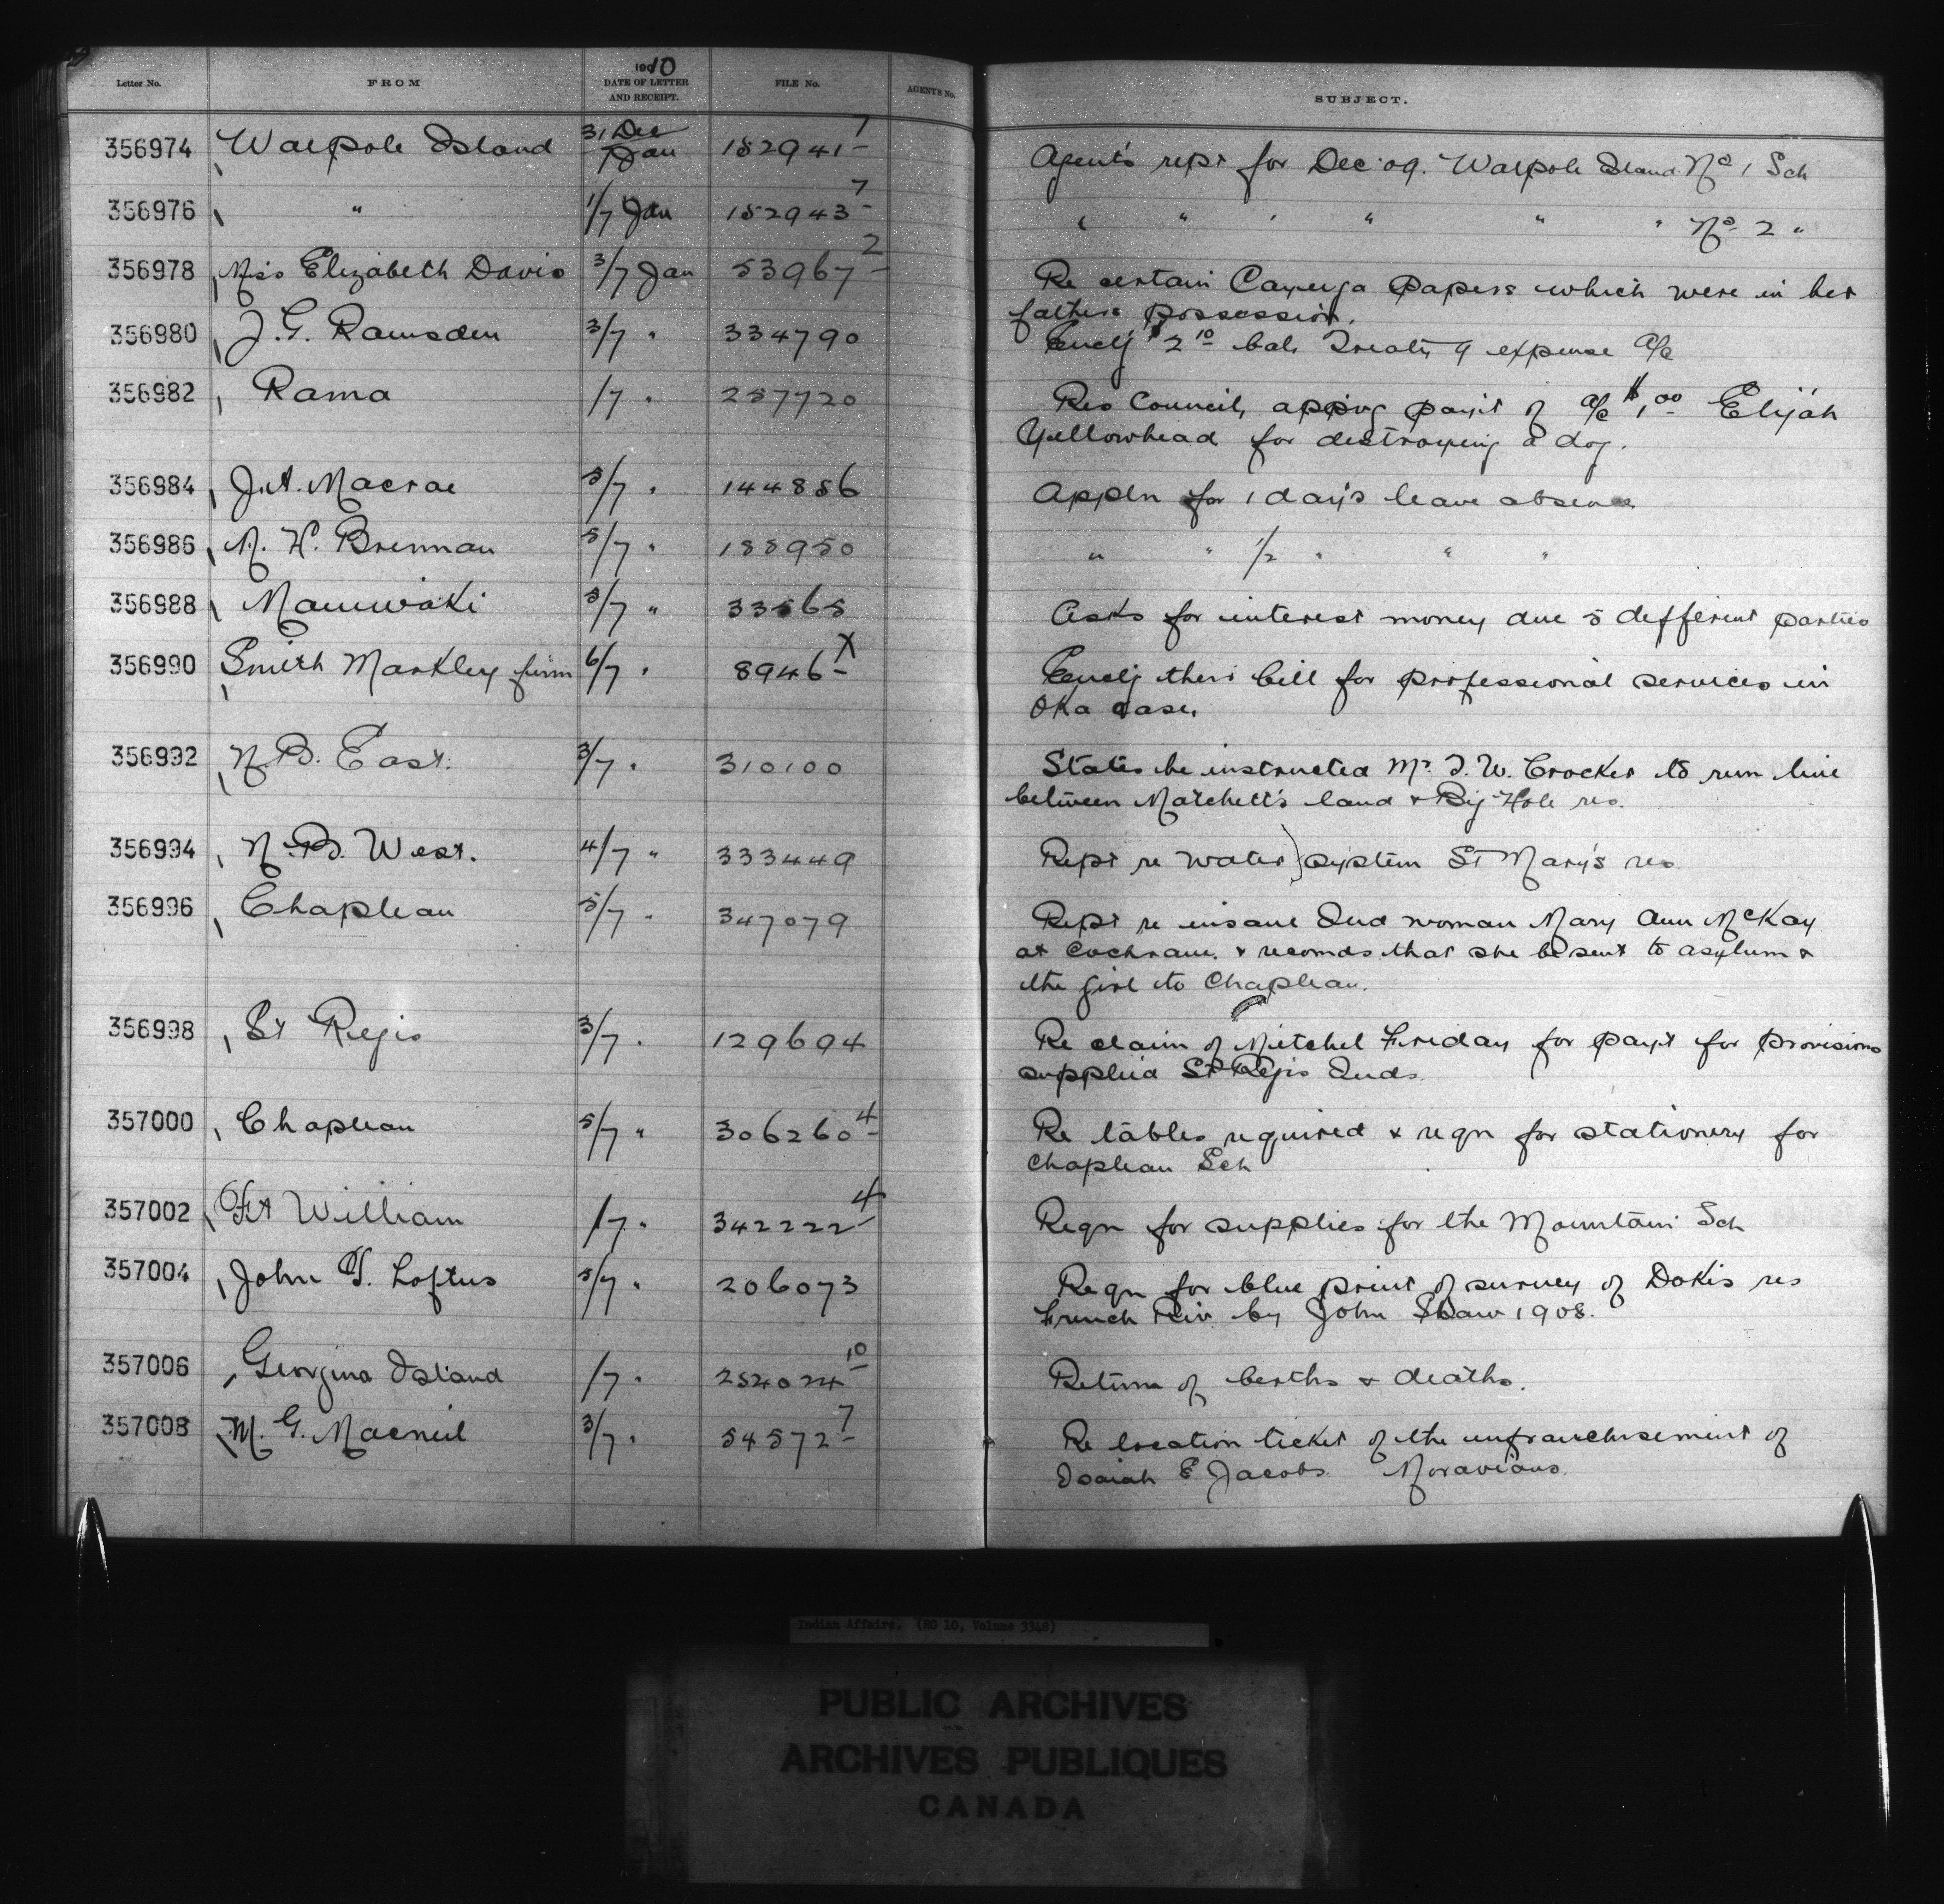 Letter No. FROM 1910 DATE OF LETTER AND RECEIPT. FILE No. AGENTS No. SUBJECT.
356974 Walpole Island 31 Dec / 7 Jan 182941-1 Agent's rept for Dec 09. Walpole Island No 1 Sch
356976 " 1/7 Jan 182943-7 " " " " " " No 2 "
356978 Miss Elizabeth Davis 3/7 Jan 53967-2 Re certain Cayuga papers which were in her
fathers possession.
356980 J. G. Ramsden 3/7 " 334790 Enclg $2 10 bal. Treaty 9 expense a/c
356982 Rama 1/7 " 257720 Res Council, apping pay't of a/c $1.00 Elijah
Yellowhead for destroying a dog.
356984 J. A. Macrae 5/7 " 144856 Appln for 1 day's leave absence
356986 M. H. Brennan 5/7 " 155950 " " 1/2 " " "
356988 Maniwaki 3/7 " 33565 Asks for interest money due 5 different parties
356990 Smith Markley firm 6/7 " 8946-X Enclg their bill for professional services in
Oka case.
356992 N. B. East. 3/7 " 310100 States he instructed Mr. T. W. Crocker to run line
between Matchett's land & Big Hole res.
356994 N. B. West. 4/7 " 333449 Rept re water system St Mary's res.
356996 Chapleau 5/7 " 347079 Rept re insane Ind woman Mary Ann McKay
at Cochrane. & recomds that she be sent to asylum &
the girl to Chapleau.
356998 St Regis 3/7 " 129694 Re claim of Mitchel Friday for pay't for provisions
supplied St Regis Inds.
357000 Chapleau 5/7 " 306260-4 Re tables required & reqn for stationery for
Chapleau Sch
357002 Ft William 1/7 " 342222-4 Reqn for supplies for the Mountain Sch
357004 John T. Loftus 5/7 " 206073 Reqn for blue print of survey of Dokis res
French Riv by John Shaw 1908.
357006 Georgina Island 1/7 " 252024-10 Return of births & deaths.
357008 M. G. Macneil 3/7 " 54572-7 Re location ticket of the enfranchisement of
Isaiah E Jacobs. Moravians.
Indian Affairs. (RG 10, Volume 3348)
PUBLIC ARCHIVES
ARCHIVES PUBLIQUES
CANADA